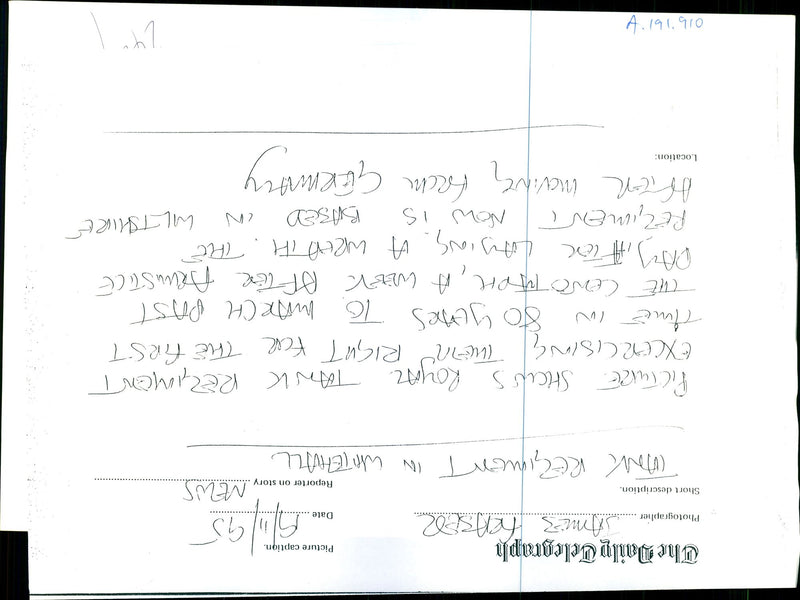 The Daily Telegraph Picture caption.
Photographer JAMES FRASER Date 19/11/95
Short description. Reporter on story NEWS
TANK REGIMENT IN WHITEHALL
PICTURE SHOWS ROYAL TANK REGIMENT
EXCERCISING THEIR RIGHT FOR THE FIRST
TIME IN 80 YEARS TO MARCH PAST
THE CENOTAPH, A WEEK AFTER ARMISTICE
DAY, AFTER LAYING A WREATH. THE
REGIMENT NOW IS BASED IN WILTSHIRE
AFTER MOVING FROM GERMANY
Location:
A.191.910